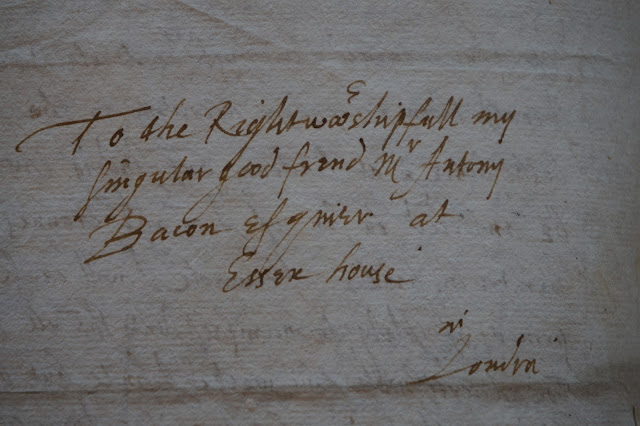 To the Rightwoorshipfull my
singular good frend Mr Antony
Bacon esquier at
Essex house
in
Londra